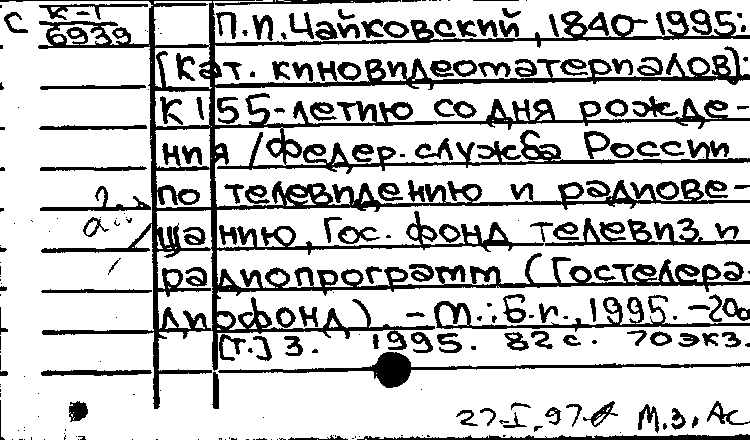 С К-I
6939
П.И.Чайковский, 1840-1995:
[Кат. киновидеоматериалов]:
К 155-летию со дня рожде-
ния / Федер. служба России
по телевидению и радиове-
щанию, Гос. фонд телевиз. и
радиопрограмм (Гостелера-
диофонд). - М.: Б.и., 1995. - 20
[Т.] 3. 1995. 82 с. 70 экз.
27-I.97 М.З. Ас